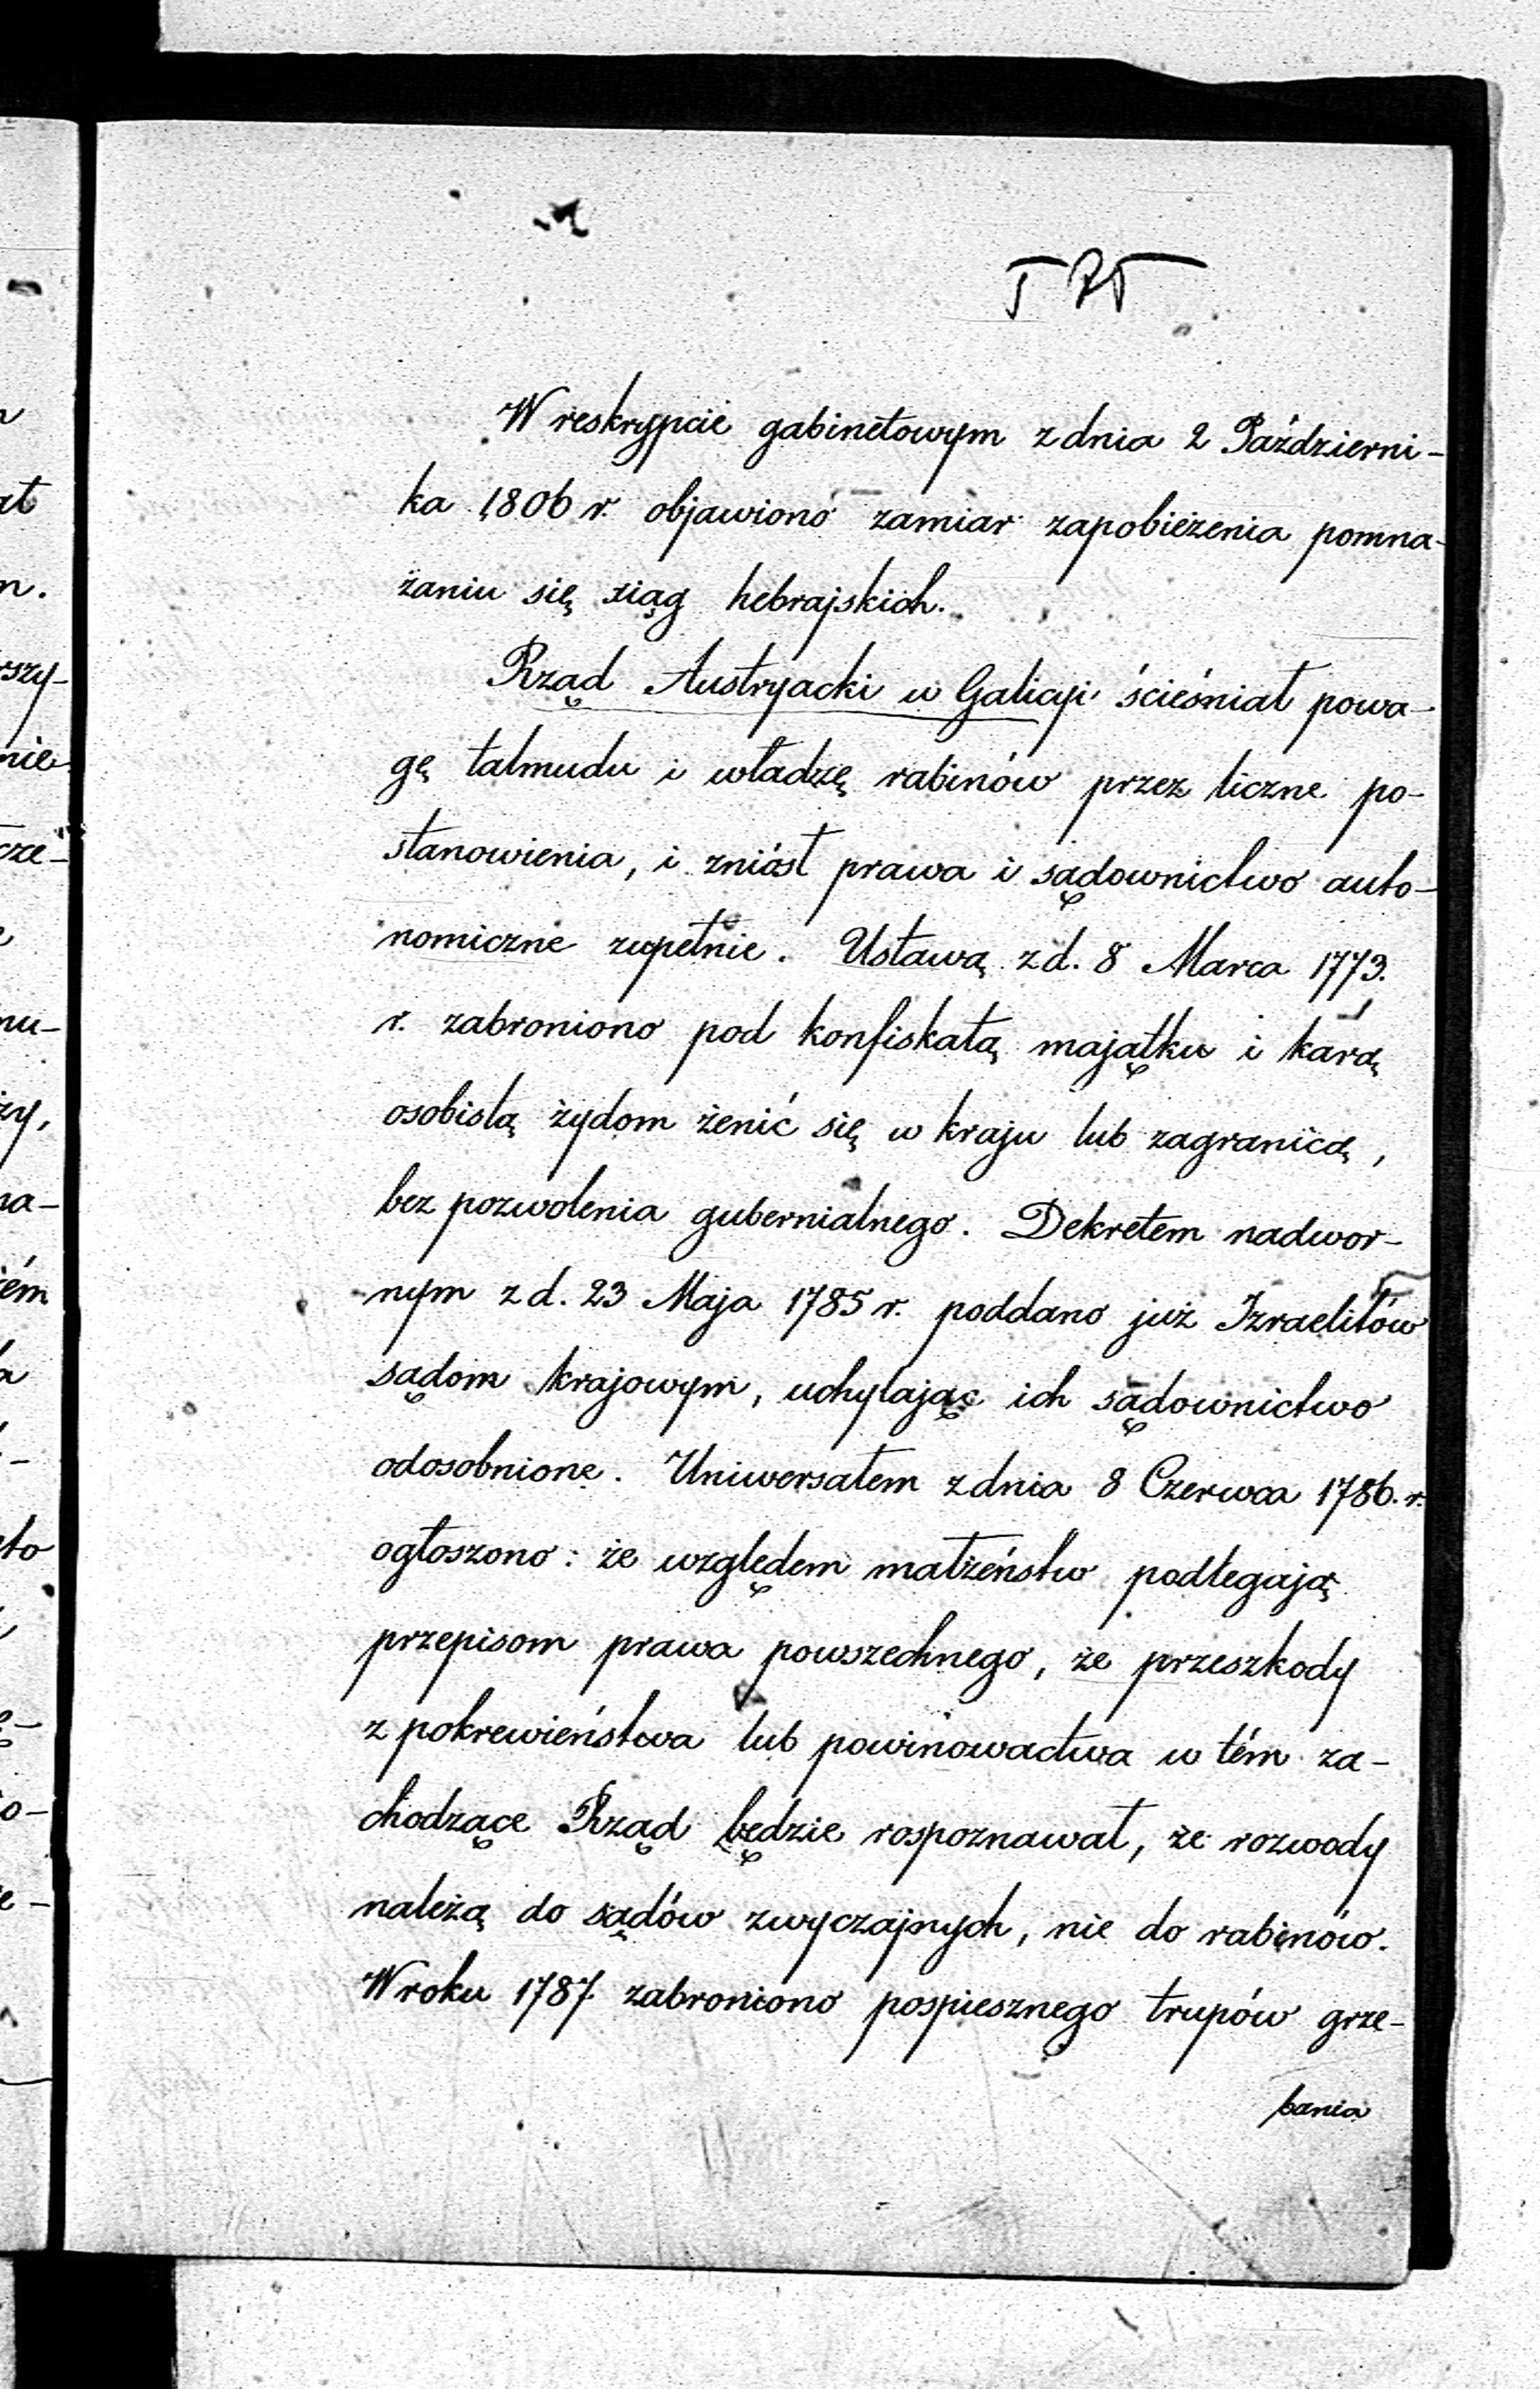 W reskrypcie gabinetowym z dnia 2 Październi-
ka 1806 r. objawiono zamiar zapobieżenia pomna-
żaniu się xiąg hebrajskich.
Rząd Austryacki w Galicyi ścieśniał powa-
gę talmudu i władzę rabinów przez liczne po-
stanowienia, i zniósł prawa i sądownictwo auto-
nomiczne zupełnie. Ustawą z d. 8 Marca 1773.
r. zabroniono pod konfiskatą majątku i karą
osobistą żydom żenić się w kraju lub zagranicą,
bez pozwolenia gubernialnego. Dekretem nadwor-
nym z d. 23 Maja 1785 r. poddano już Izraelitów
sądom krajowym, uchylając ich sądownictwo
odosobnione. Uniwersałem z dnia 8 Czerwca 1786. r.
ogłoszono: że względem małżeństw podlegają
przepisom prawa powszechnego, że przeszkody
z pokrewieństwa lub powinowactwa w tém za-
chodzące Rząd będzie rospoznawał, że rozwody
należą do sądów zwyczajnych, nie do rabinów.
W roku 1787. zabroniono pospiesznego trupów grze-
bania